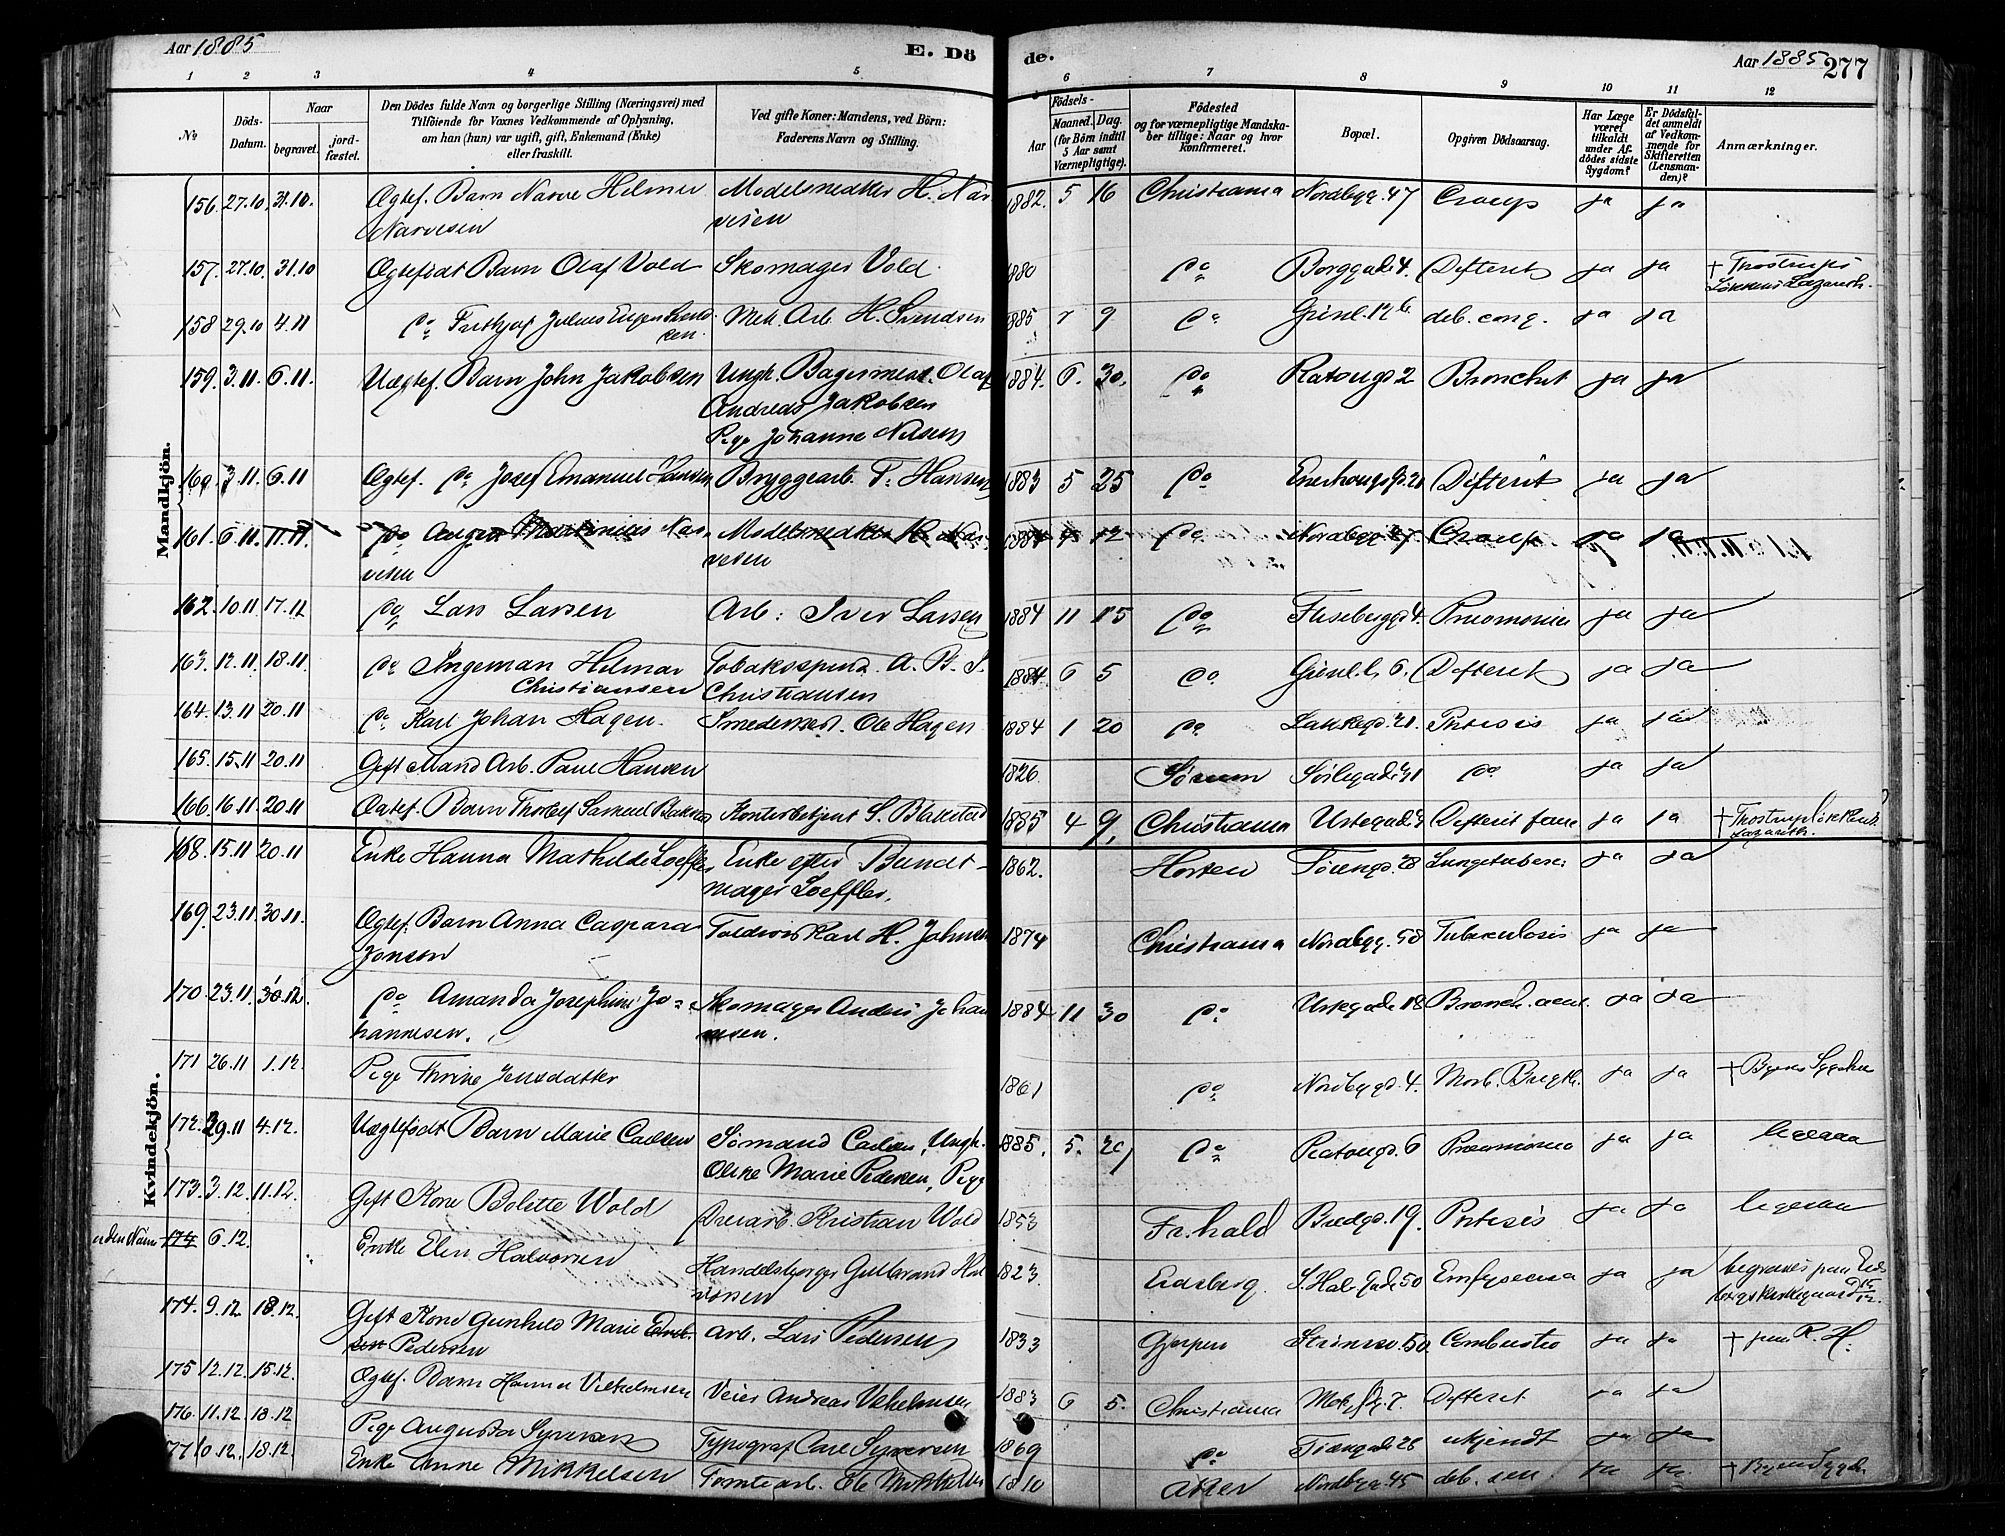 Aar 1885
E. Dö
de.
Aar 1885
277
1 2 3 4 5 6 7 8 9 10 11 12
No
Döds-Datum.
Naar
begravet.
jord-fæstet.
Den Dödes fulde Navn og borgerlige Stilling (Næringsvei) med
Tilföiende for Voxnes Vedkommende af Oplysning,
om han (hun) var ugift, gift, Enkemand (Enke)
eller fraskilt.
Ved gifte Koner: Mandens, ved Börn:
Faderens Navn og Stilling.
Födsels-
Aar
Maaned. Dag.
(for Börn indtil
5 Aar samt
Værnepligtige).
Födested
og for værnepligtige Mandska-
ber tillige: Naar og hvor
konfirmeret.
Bopæl.
Opgiven Dödsaarsag.
Har Læge
været
tilkaldt
under Af-
dödes sidste
Sygdom?
Er Dödsfal-
det anmeldt
af Vedkom-
mende for
Skifteretten
(Lensman-
den)?
Anmærkninger.
Mandkjön.
156. 27.10. 31.10. Ægtef. Barn Narve Hilmer Modelsnedker H. Nar- 1882. 5 16 Christiania Nordbyg. 47 Croup ja ja
Narvesen vesen
157. 27.10. 31.10 Ægtefødt Barn Olaf Vold Skomager Vold. 1880 do Borggade 4. Difterit ja ja † Thostrups
Løkkens Lazareth.
158 29.10 4.11 do Fritkjof Julius Eugen Mek. Arb. H. Svendsen 1885 9 do Grønl. 12 b. deb. cong. ja ja
159. 3.11. 6.11. Uægtef. Barn John Jakobsen Ungk. Bagersvend. Olaf 1884. 6. 30. do Ratougd 2 Bronchit ja ja
Andreas Jakobsen
Pige Johanne Nilsen
160 3.11. 6.11 Ægtef. do Josef Emanuel Hansen Bryggearb. T. Hansen 1883 5 25 do Enerhougsg. 21 Difterit ja ja
161. 6.11. 11.11. do August Martinius Nar- Modelsnedker H. Nar- 1884 12 do Nordbyg. 47. Croup ja ja
vesen vesen
162. 10.11 17.11 do Lars Larsen Arb: Iver Larsen 1884 11 15 do Flisebergd. 4. Pneumonia ja ja
163. 12.11. 18.11 do Ingeman Hilmar Tobaksspind. A. B. S. 1884. 6 5 do Grønl. l. 6. Difterit ja ja
Christiansen Christiansen
164. 13.11 20.11 do Karl Johan Hagen. Smedersvend. Ole Hagen 1884 1 20 do Lakkegd. 21. Phtisis ja ja
165. 15.11 20.11 Gift Mand Arb. Paul Hansen 1826. Sørum Sørlegade 21 do ja ja
166. 16.11 20.11 Ægtef. Barn Thorlef Samuel Kontorbetjent S. Blakstad 1885 4 9. Christiania Urtegad. Difterit fauc ja ja † Thostrupsløkkens
Lazareth.
Kvindekjön.
168. 15.11 20.11 Enke Hanna Mathilde Loeffler Enke efter Bundt- 1862. Horten Sørengd. 28 Lungetuberc: ja ja
mager Loeffler.
169. 23.11 30.11. Ægtef. Barn Anna Caspara Karl H. Johnsen 1874 Christiania Nordbyg. 58 Tuberculosis ja ja
Jonsen
170. 23.11. 30.12. do Amanda Josephine Jo- Skomager Anders Johan- 1884 11 30 do Urtegade 18 Bronch. acut. ja ja
hannesen. nesen.
171 26.11 1.12. Pige Thrine Jensdatter 1861 do Nordbygd. 4. Morb. Brigth. ja ja † Byens Sygehus
172. 29.11 4.12. Uægtefødt Barn Marie Carlsen Sømand Carlsen, Ungk. 1885. 5. 20 do Ratougd. 6 Pneumonia ja ja ligesaa
Olike Marie Pedersen, Pige
173. 3.12. 11.12. Gift Kone Bolitte Wold Kristian Wold 1853 Fr.hald Bredgd. 19. Phtisis ja ja ligesaa
uden Nummer 174 6.12. Enke Elen Halvorsen Handelsborger Gulbrand Hal- 1823. Eidsberg. S.Hal. Gade 50 Emfysema ja ja begraves paa Eids-
vorsen bergs Kirkegaard D. 15/12.
174. 9.12. 18.12. Gift Kone Gunhild Marie Arb. Lars Pedersen 1833 Gjerpen Strømsv. 50 Combustio ja ja † paa R. H.
Pedersen
175 12.12. 15.12. Ægtef. Barn Hanna Vilhelmsen Veier Andreas Vilhelmsen 1883 6 5. Christiania 7. Difterit ja ja
176. 11.12 18.12 Pige Augusta Syversen Typograf Carl Syversen 1869 do 26 ukjendt ja ja
177 10.12. 18.12. Enke Anne Mikkelsen Tomtearb. Ole Mikkelsen 1810 Aker Nordbyg. 45 deb. sen. ja ja † Byens Sygeh.